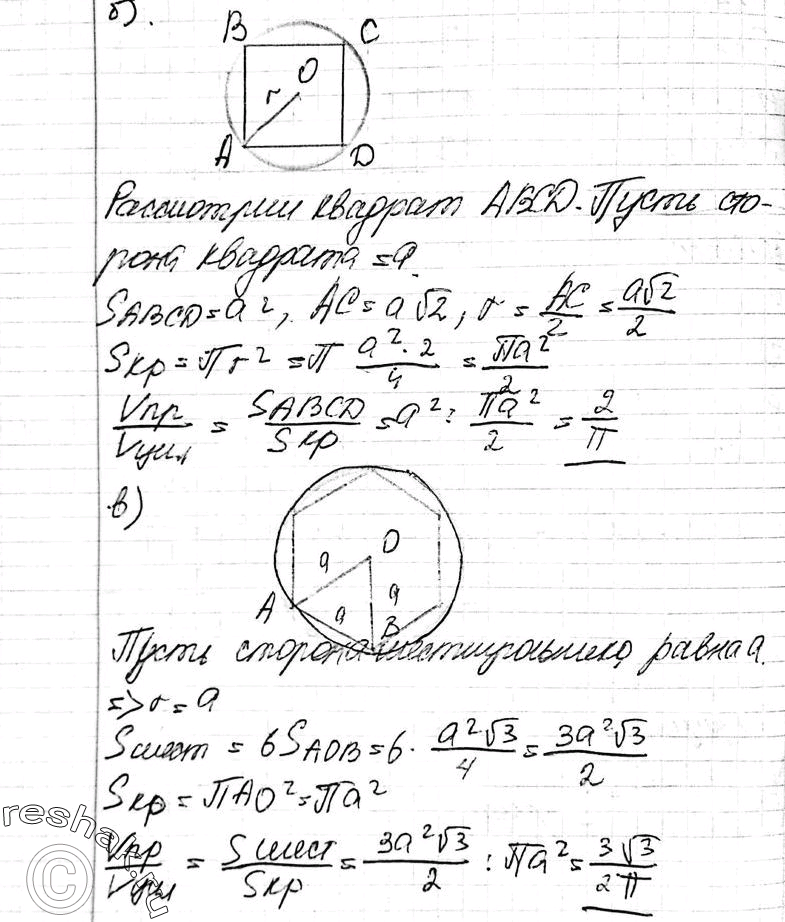 б).
B C
O
r
A D
Рассмотрим квадрат ABCD. Пусть сто-
рона квадрата = a.
SABCD = a², AC = a√2, r = AC/2 = a√2/2
Sкр = Πr² = Π a²·2/4 = Πa²/2
Vпр/Vцил = SABCD/Sкр = a² : Πa²/2 = 2/Π
в)
O
a
a
A a
B
Пусть сторона шестиугольника равна a.
=> r = a
Sшест = 6SAOB = 6· a²√3/4 = 3a²√3/2
Sкр = ΠAO² = Πa²
Vпр/Vцил = Sшест/Sкр = 3a²√3/2 : Πa² = 3√3/2Π
©reshak.ru